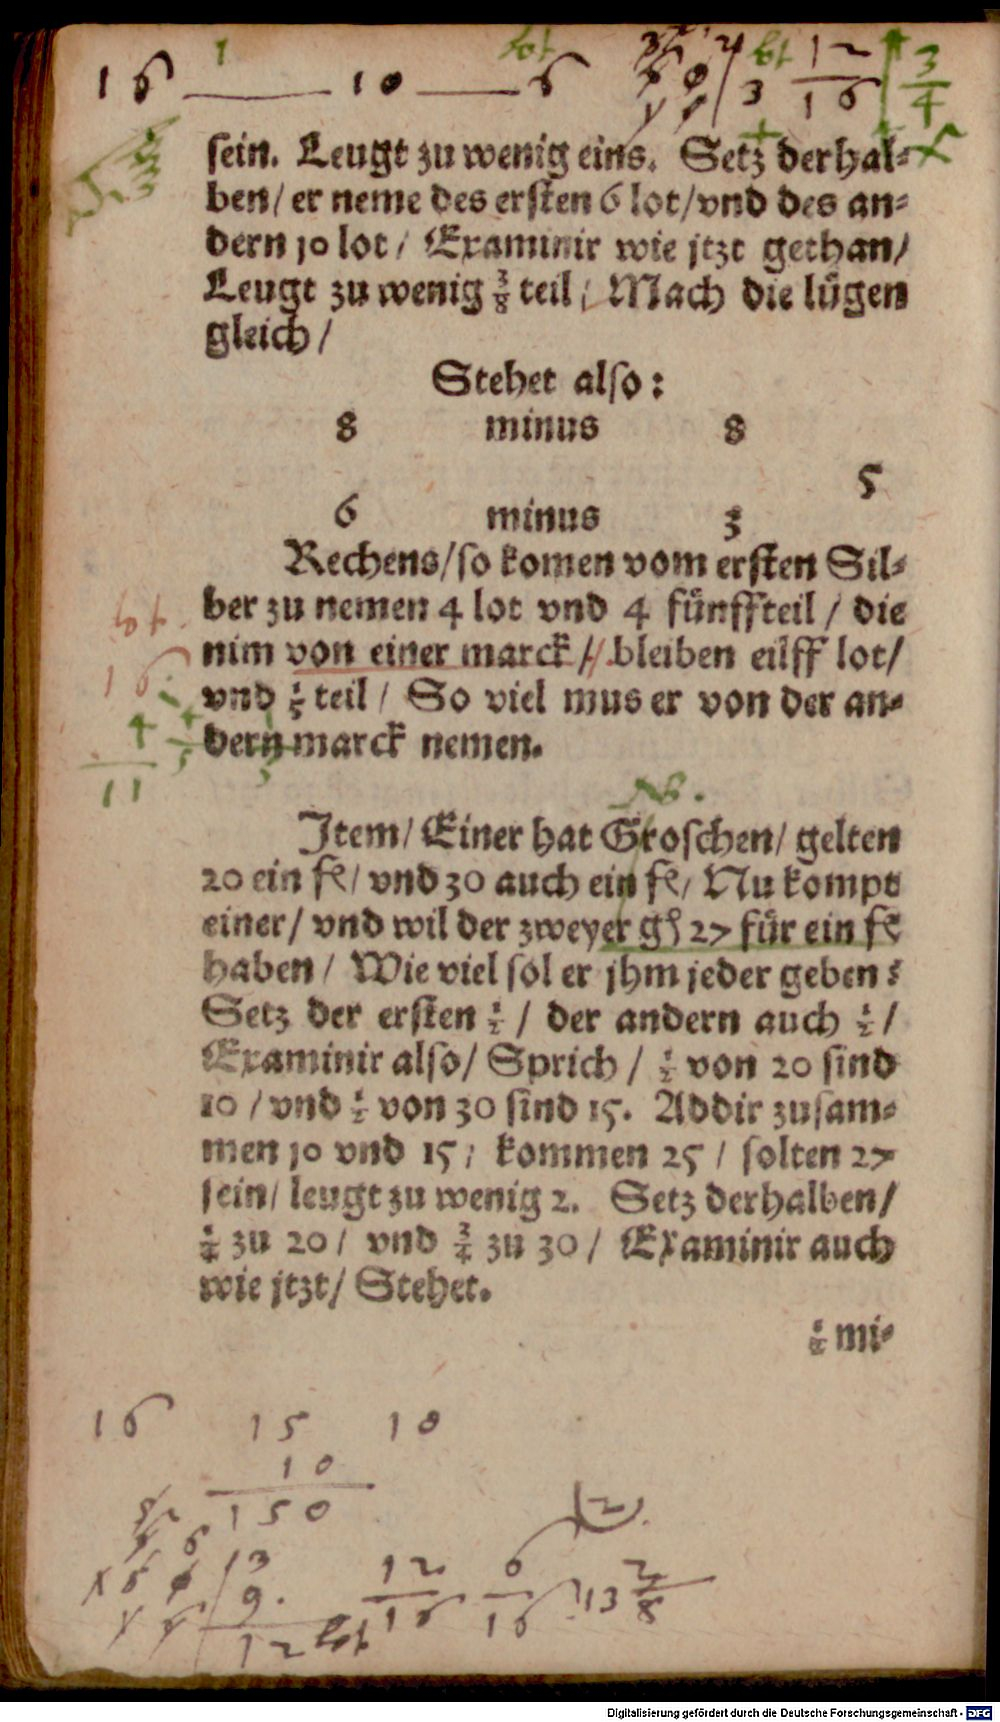 1
lot
lot
16 — 10 — 6
3
12
16
3
4
sein. Leugt zu wenig eins. Setz derhal⸗
ben/ er neme des ersten 6 lot/vnd des an⸗
dern 10 lot/ Examinir wie jtzt gethan/
Leugt zu wenig 3/8 teil/ Mach die lügen
gleich/
Stehet also:
8 minus 8
5
6 minus 3
Rechens/so komen vom ersten Sil⸗
ber zu nemen 4 lot vnd 4 fünffteil/ die
nim von einer marck/ bleiben eilff lot/
vnd 1/5 teil/ So viel mus er von der an⸗
dern marck nemen.
lot
16
4
11
NB.
Item/ Einer hat Groschen/ gelten
20 ein fl/ vnd 30 auch ein fl/ Nu kompt
einer/ vnd wil der zweyer gl 27 für ein fl
haben/ Wie viel sol er jhm jeder geben?
Setz der ersten 1/2/ der andern auch 1/2/
Examinir also/ Sprich/ 1/2 von 20 sind
10/ vnd 1/2 von 30 sind 15. Addir zusam⸗
men 10 vnd 15/ kommen 25/ solten 27
sein/ leugt zu wenig 2. Setz derhalben/
1/4 zu 20/ vnd 3/4 zu 30/ Examinir auch
wie jtzt/ Stehet.
1/2 mi⸗
16 15 10
10
150
(2).
3
9.
12 lot
12
16
6
16
13 2/8
Digitalisierung gefördert durch die Deutsche Forschungsgemeinschaft - DFG